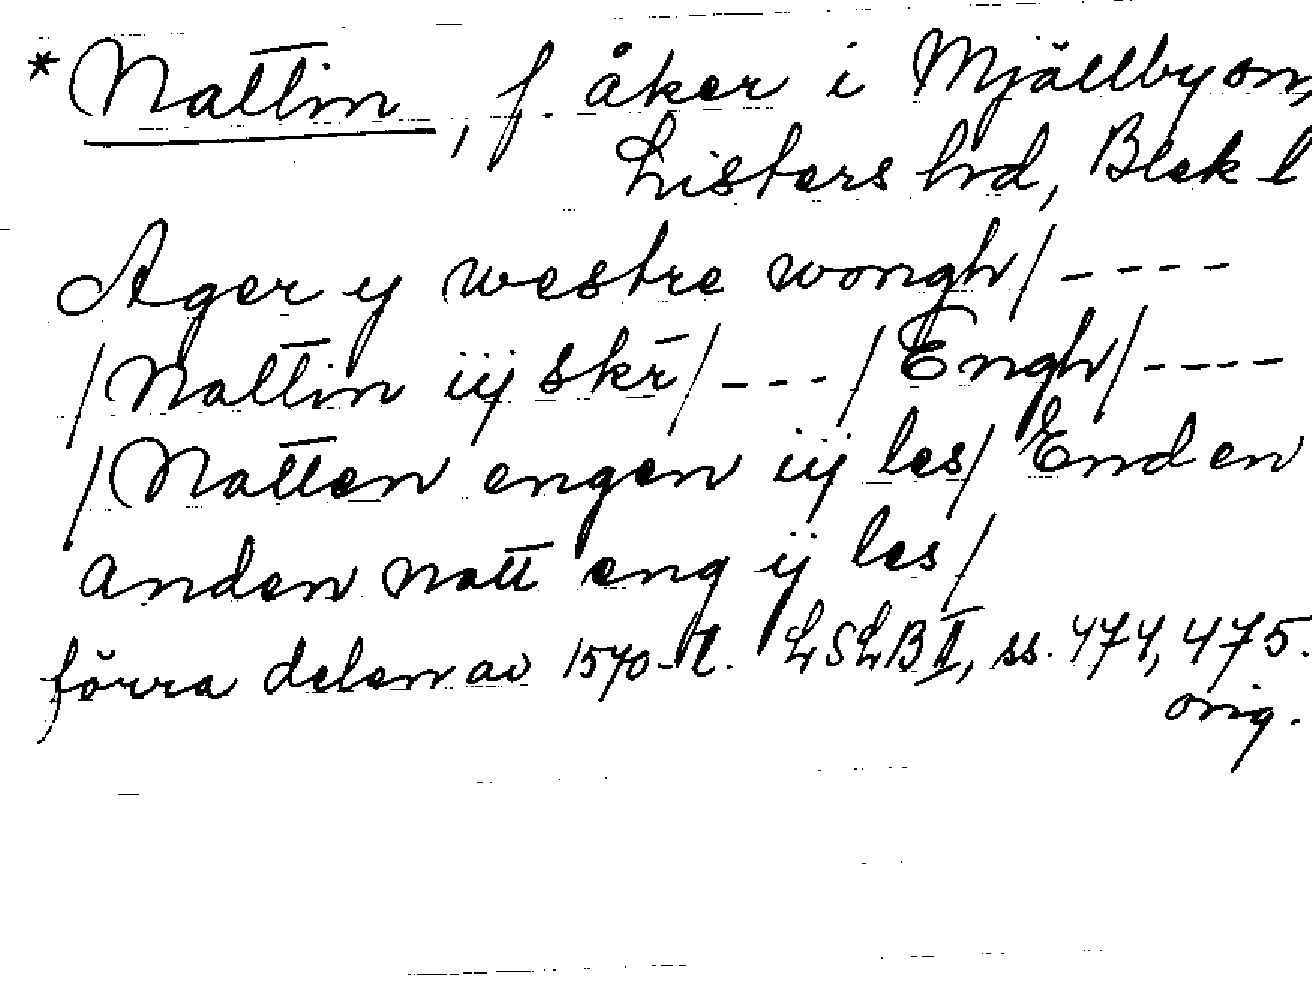 * Nattin, f. åker i Mjällby sn,
Listers hrd, Blek l
Ager y westre wongh/----
/Nattin iij skr/---/Engh/----
/Natten engen iij les/ Enden
anden natt eng ij les/
förra delen av 1570-t. LSLB II, ss. 474, 475.
orig.